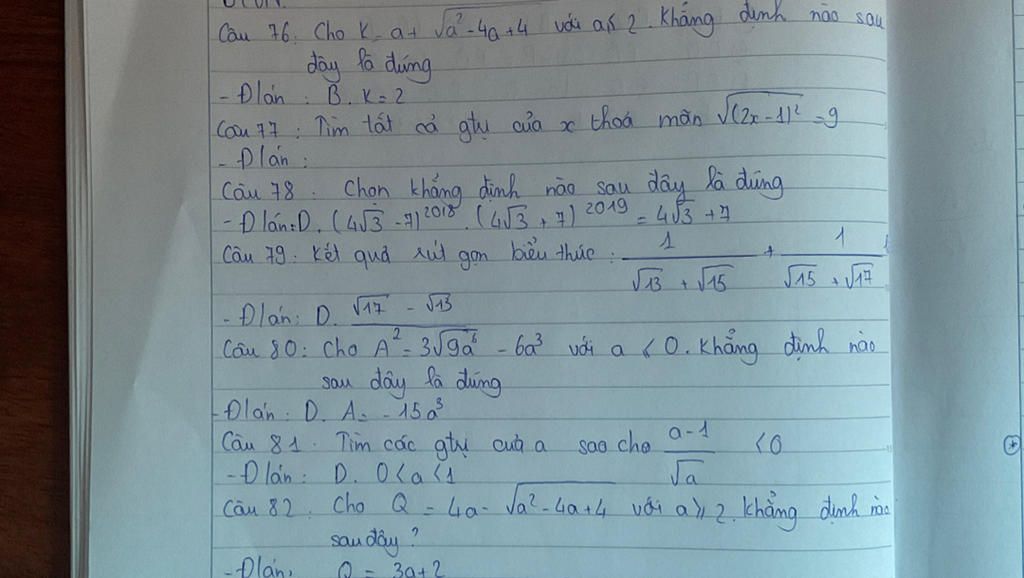 Câu 76: Cho K = a + √(a² - 4a + 4) với a ≤ 2. Khẳng định nào sau
đây là đúng
- Đ/án : B. K = 2
Câu 77 : Tìm tất cả gtrị của x thoả mãn √((2x - 1)²) = 9
- Đ/án :
Câu 78 : Chọn khẳng định nào sau đây là đúng
- Đ/án: D. (4√3 - 7)^2018 . (4√3 + 7)^2019 = 4√3 + 7
Câu 79: Kết quả rút gọn biểu thức : 1/(√13 + √15) + 1/(√15 + √17)
- Đ/án: D. (√17 - √13)/2
Câu 80: Cho A = 3√(9a⁶) - 6a³ với a ≤ 0. Khẳng định nào
sau đây là đúng
- Đ/án : D. A = - 15a³
Câu 81 : Tìm các gtrị của a sao cho (a - 1)/√a < 0
- Đ/án : D. 0 < a < 1
Câu 82 : Cho Q = 4a - √(a² - 4a + 4) với a ≥ 2. Khẳng định nào
sau đây ?
- Đ/án: Q = 3a + 2